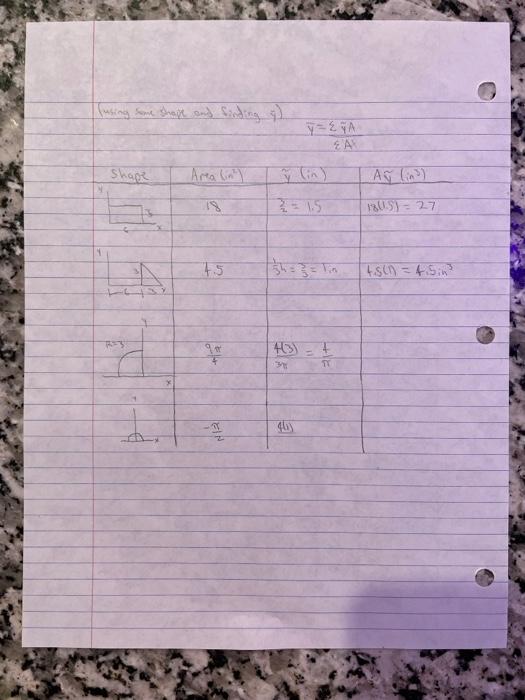 (using same shape and finding ȳ)
ȳ = Σ ỹA
ΣA
Shape Area (in²) ỹ (in) Aỹ (in³)
y 3 6 x 18 3/2 = 1.5 18(1.5) = 27
y 3 6 3 x 4.5 1/3h = 3/3 = 1 in 4.5(1) = 4.5 in³
y R=3 x 9π/4 4(3)/3π = 4/π
y x -π/2 4(1)